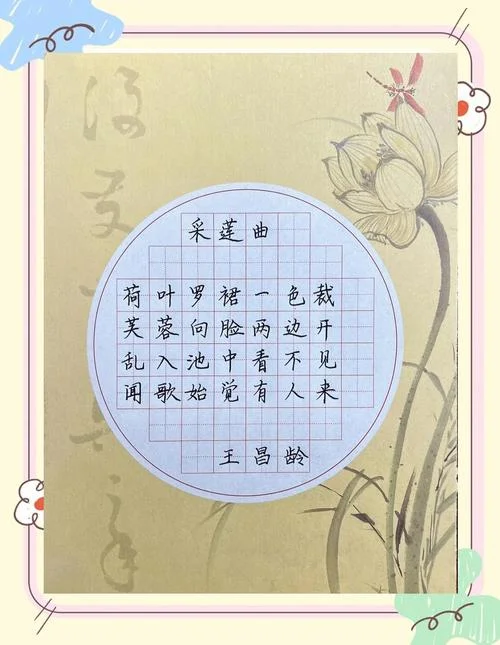 采莲曲
荷叶罗裙一色裁
芙蓉向脸两边开
乱入池中看不见
闻歌始觉有人来
王昌龄